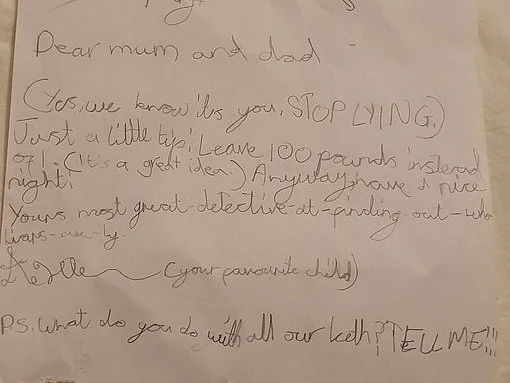 Dear mum and dad
(Yes, we know it's you, STOP LYING.)
Just a little tip: Leave 100 pounds instead
of 1. (It's a great idea.) Anyway have a nice
night!
Yours most great-detective-at-finding out-who
liars-are-by.
(your favourite child)
P.S. What do you do with all our teeth? TELL ME!!!